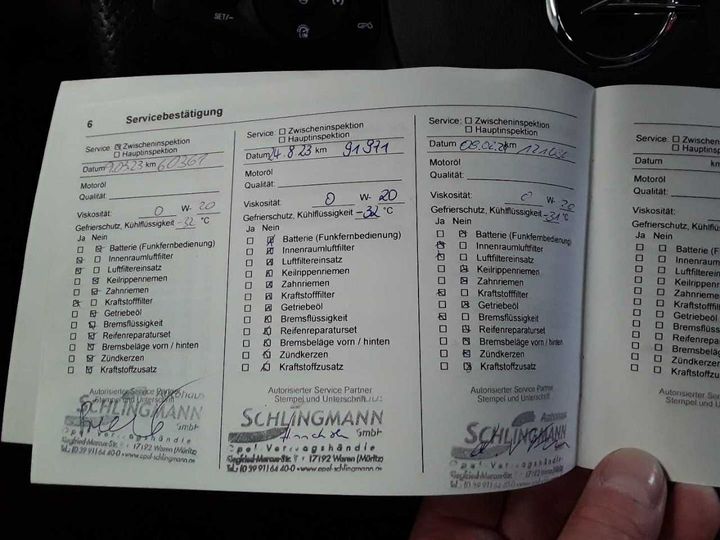 SET/–
6 Servicebestätigung
Service: ☒ Zwischeninspektion
☐ Hauptinspektion
Datum km 60361
Motoröl
Qualität:
Viskosität: 0 W- 20
Gefrierschutz, Kühlflüssigkeit -32 °C
Ja Nein
Batterie (Funkfernbedienung)
Innenraumluftfilter
Luftfiltereinsatz
Keilrippenriemen
Zahnriemen
Kraftstofffilter
Getriebeöl
Bremsflüssigkeit
Reifenreparaturset
Bremsbeläge vorn / hinten
Zündkerzen
Kraftstoffzusatz
Autorisierter Service Partner
Stempel und Unterschrift
SCHLINGMANN
GmbH
Opel-Vertragshändle
Siegfried-Marcus-Str. 17192 Waren (Müritz)
Tel.: (0 39 91) 64 40-0 www.opel-schlingmann.de
Service: ☐ Zwischeninspektion
☐ Hauptinspektion
Datum 24.8.23 km 91971
Motoröl
Qualität:
Viskosität: 0 W- 20
Gefrierschutz, Kühlflüssigkeit -32 °C
Ja Nein
Batterie (Funkfernbedienung)
Innenraumluftfilter
Luftfiltereinsatz
Keilrippenriemen
Zahnriemen
Kraftstofffilter
Getriebeöl
Bremsflüssigkeit
Reifenreparaturset
Bremsbeläge vorn / hinten
Zündkerzen
Kraftstoffzusatz
Autorisierter Service Partner
Stempel und Unterschrift
SCHLINGMANN
GmbH
Opel-Vertragshändle
Siegfried-Marcus-Str. 17192 Waren (Müritz)
Tel.: (0 39 91) 64 40-0 www.opel-schlingmann.de
Service: ☐ Zwischeninspektion
☐ Hauptinspektion
Datum km
Motoröl
Qualität:
Viskosität: 0 W- 20
Gefrierschutz, Kühlflüssigkeit -31 °C
Ja Nein
Batterie (Funkfernbedienung)
Innenraumluftfilter
Luftfiltereinsatz
Keilrippenriemen
Zahnriemen
Kraftstofffilter
Getriebeöl
Bremsflüssigkeit
Reifenreparaturset
Bremsbeläge vorn / hinten
Zündkerzen
Kraftstoffzusatz
Autorisierter Service Partner
Stempel und Unterschrift
SCHLINGMANN
Opel-Vertragshändle
17192 Waren (Müritz)
www.opel-schlingmann.de
Service: ☐ Zwischeninspektion
☐ Hauptinspektion
Datum km
Motoröl
Qualität:
Viskosität: W-
Gefrierschutz, Kühlflüssigkeit
Ja Nein
Batterie (Fun
Innenraumlu
Luftfilterein
Keilrippen
Zahnriem
Kraftstof
Getriebe
Bremsfl
Reifenr
Brems
Zündk
Kraft
Autorisierter S
Stempel und